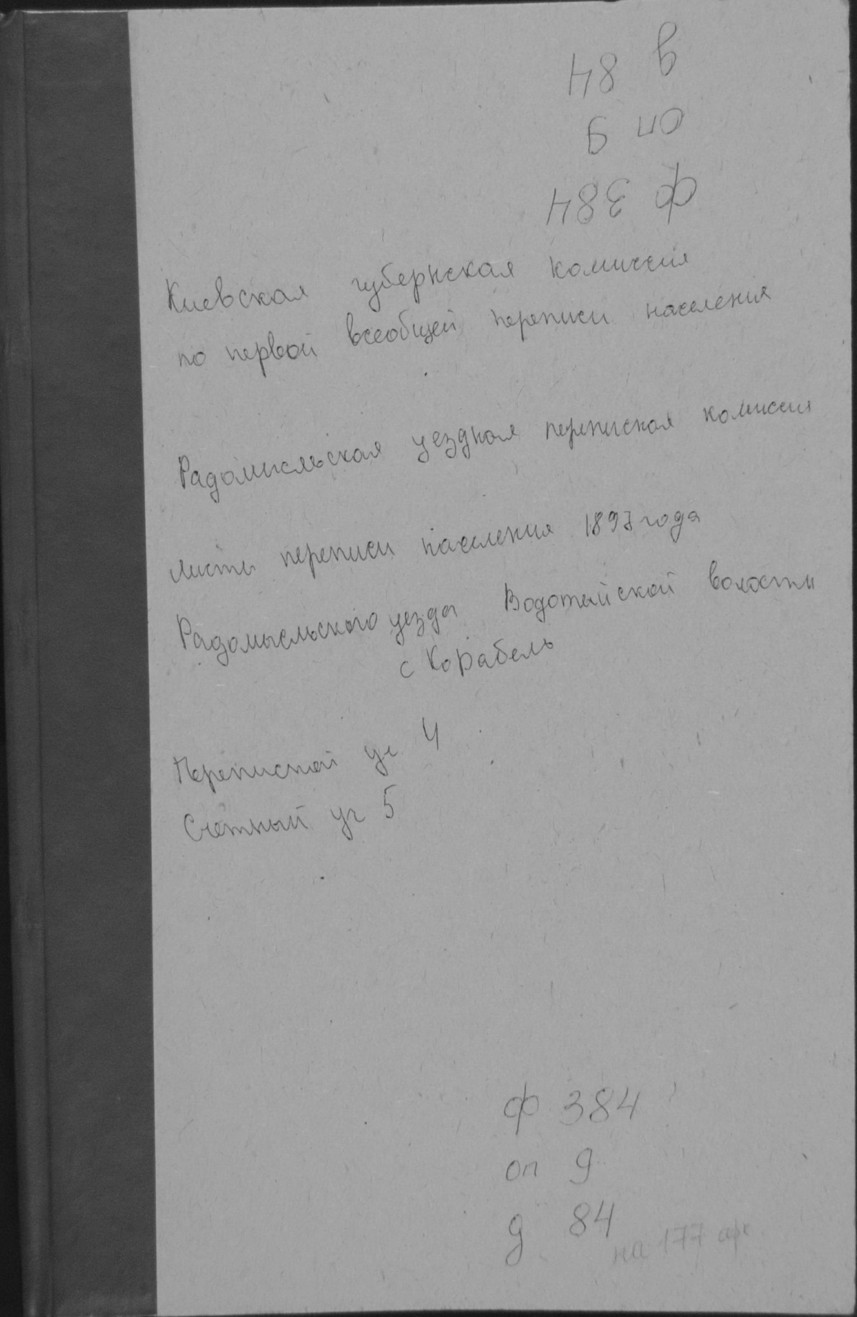 д 84
оп 9
ф 384
Киевская губернская комиссия
по первой всеобщей переписи населения
Радомысльская уездная переписная комиссия
Листы переписи населения 1897 года
Радомысльского уезда Водотыйской волости
с Корабель
Переписной уч 4
Счётный уч 5
ф 384
оп 9
д 84
на 177 арк